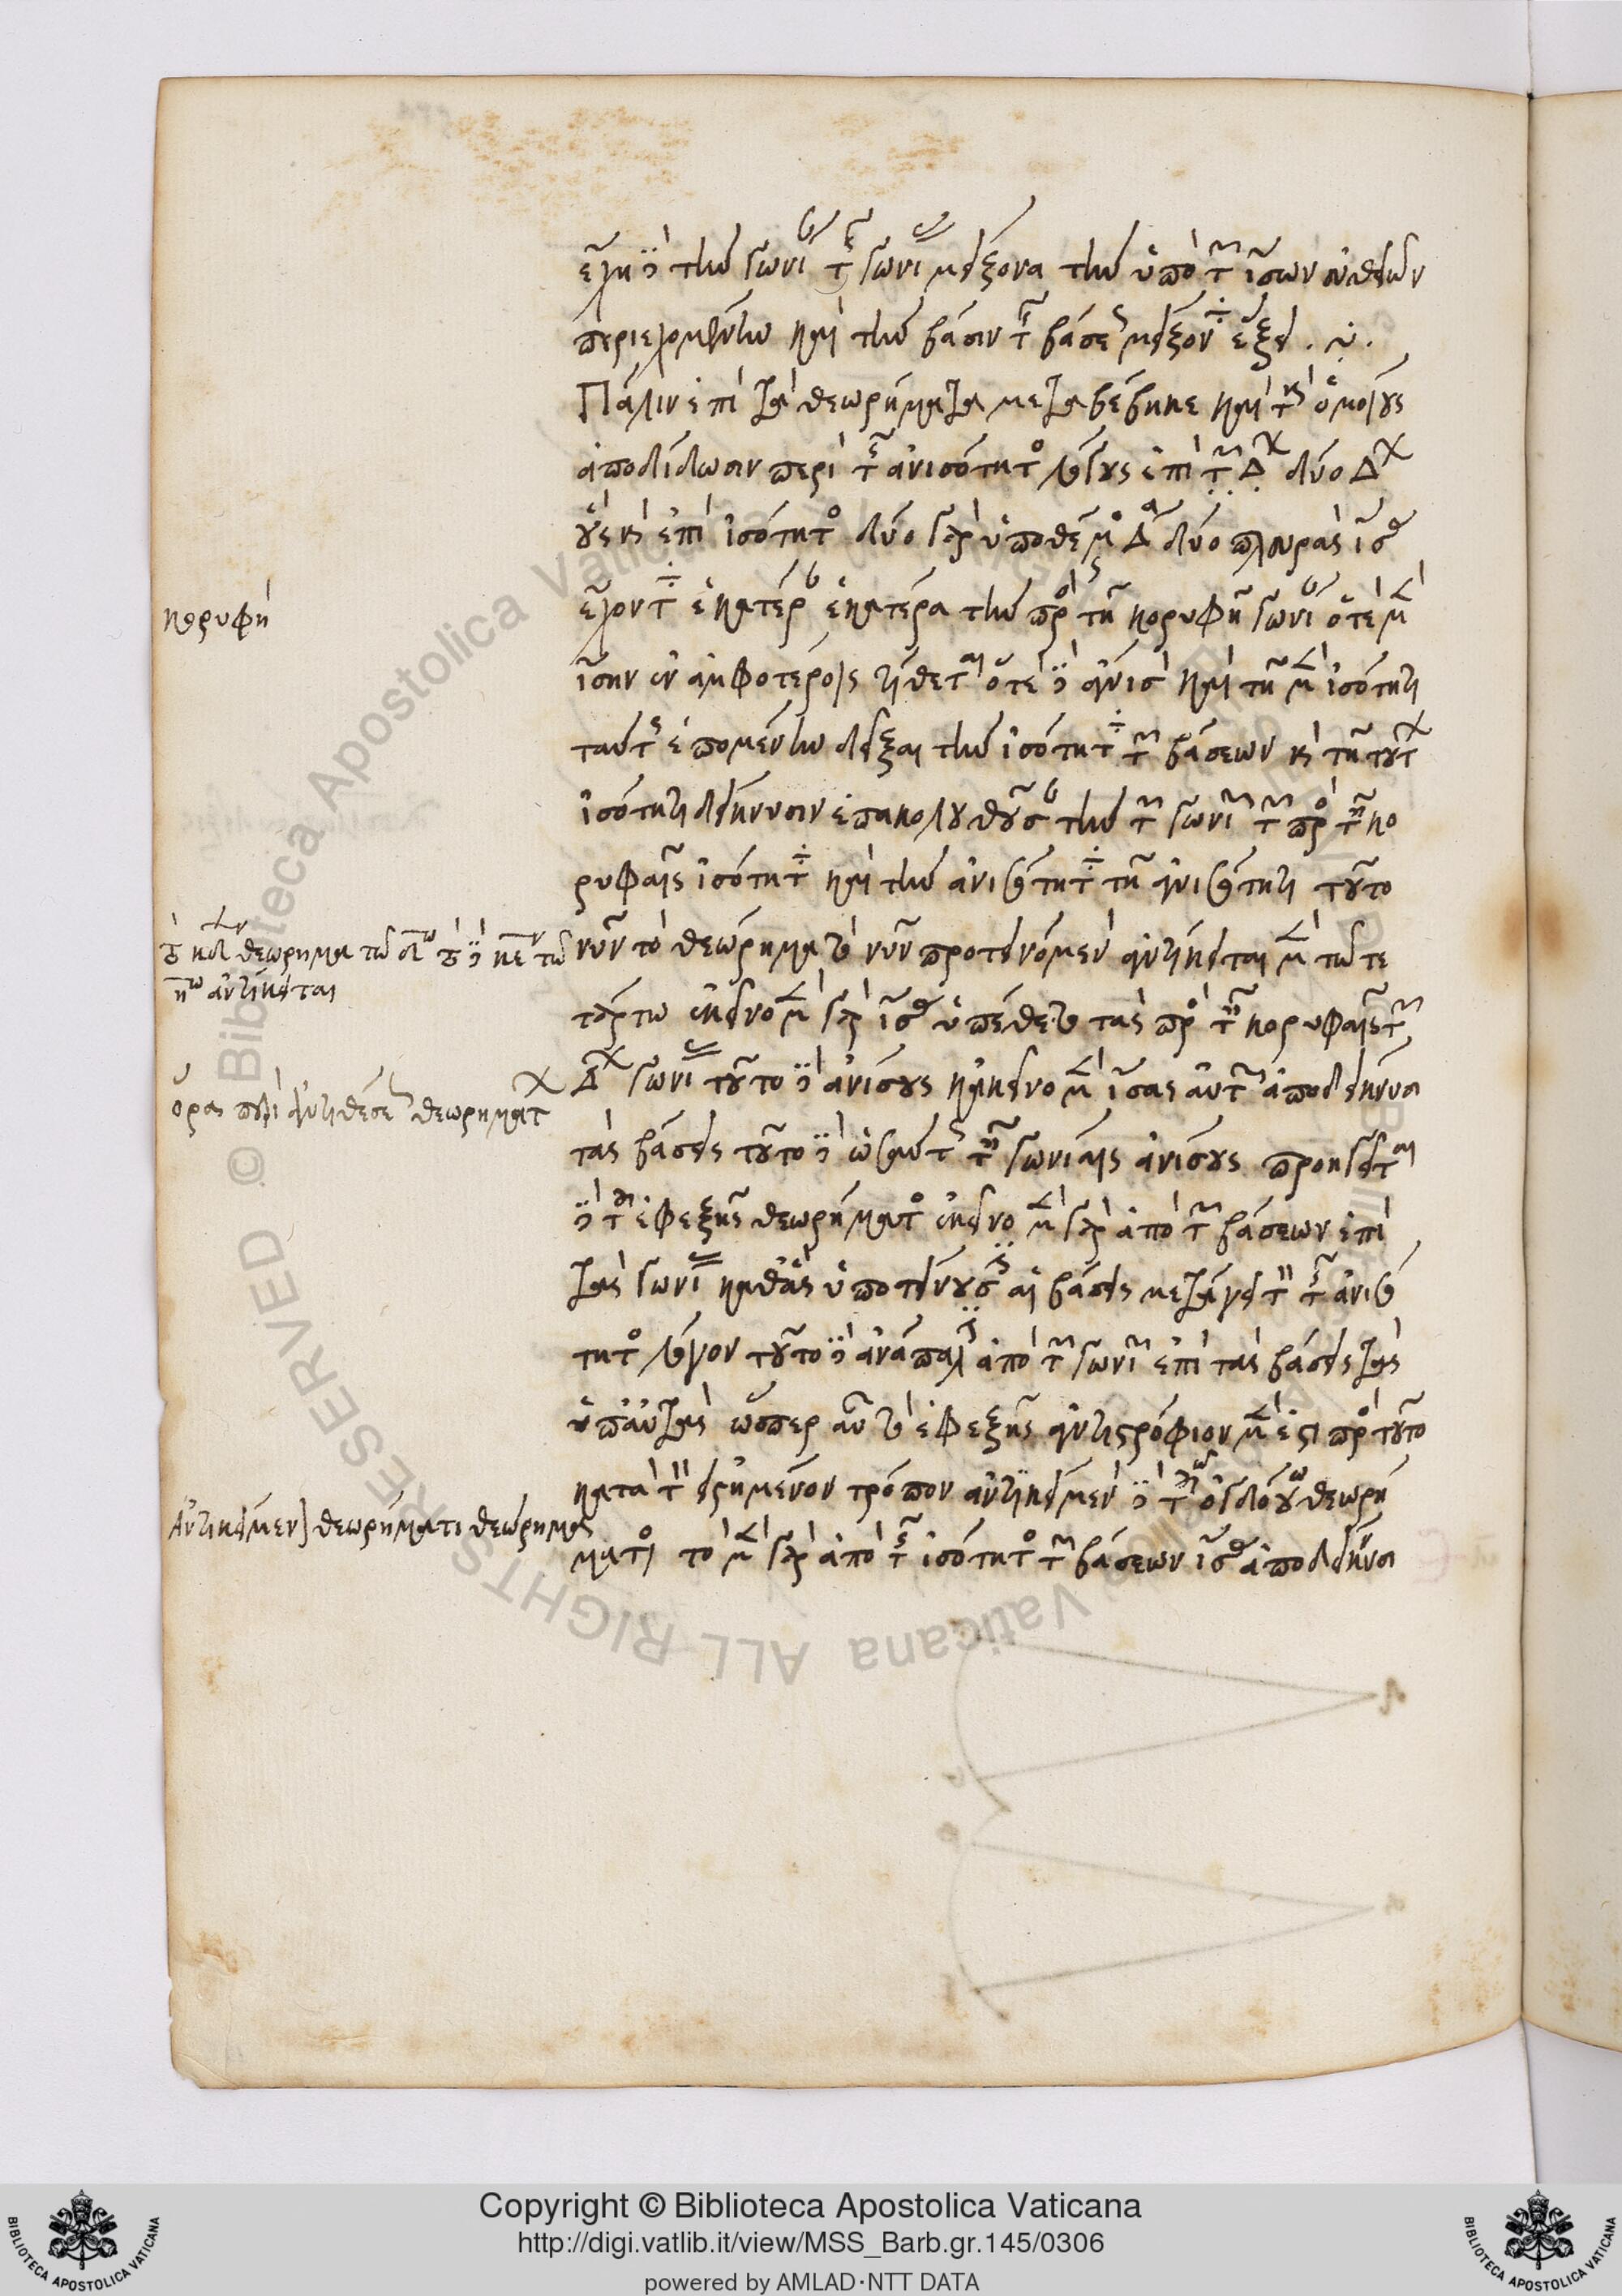 ἔχῃ δὲ τὴν γωνίαν τῆς γωνίας μείζονα τὴν ὑπὸ τῶν ἴσων εὐθειῶν
περιεχομένην καὶ τὴν βάσιν τῆς βάσεως μείζονα ἕξει.
Πάλιν ἐπὶ τὰ θεωρήματα μεταβέβηκε καὶ τοὺς ὁμοίους
ἀποδίδωσιν περὶ τῆς ἀνισότητος λόγους ἐπὶ τῶν τριγώνων δύο τριγώνων
οὓς καὶ ἐπὶ ἰσότητος δύο γὰρ ὑποθέμενος τρίγωνα δύο πλευρὰς ἴσας
ἔχοντα ἑκατέραν ἑκατέρᾳ τὴν πρὸς τῇ κορυφῇ γωνίαν ὁτὲ μὲν
ἴσην ἐν ἀμφοτέροις τίθεται ὁτὲ δὲ ἄνισον καὶ τῇ μὲν ἰσότητι
ταύτης ἑπομένην δεῖξαι τὴν ἰσότητα τῶν βάσεων καὶ τῇ τούτων
ἰσότητι δείκνυσιν ἐπακολουθοῦσαν τὴν τῶν γωνιῶν τῶν πρὸς ταῖς κο
ρυφαῖς ἰσότητα καὶ τὴν ἀνισότητα τῇ ἀνισότητι τοῦτο
νῦν τὸ θεώρημα τὸ νῦν προτεινόμενον ἀντίκειται μὲν τῷ τε
τάρτῳ ἐκεῖνο μὲν γὰρ ἴσας ὑπέθετο τὰς πρὸς ταῖς κορυφαῖς τῶν
τριγώνων γωνίας τοῦτο δὲ ἀνίσους κἀκεῖνο μὲν ἴσας αὐτῶν ἀποδείκνυσι
τὰς βάσεις τοῦτο δὲ ὡσαύτως ταῖς γωνίαις ἀνίσους προηγεῖται
δὲ τοῦ ἐφεξῆς θεωρήματος ἐκεῖνο μὲν γὰρ ἀπὸ τῶν βάσεων ἐπὶ
τὰς γωνίας καθ' ἃς ὑποτείνουσιν αἱ βάσεις μετάγει τὸν τῆς ἀνισό
τητος λόγον τοῦτο δὲ ἀνάπαλιν ἀπὸ τῶν γωνιῶν ἐπὶ τὰς βάσεις τὰς
ὑπ' αὐτὰς ὥσπερ αὖ τὸ ἐφεξῆς ἀντιστρόφιον μέν ἐστι πρὸς τοῦτο
κατὰ τὸν εἰρημένον τρόπον ἀντικείμενον δὲ τῷ ὀγδόῳ θεωρή
ματι τὸ μὲν γὰρ ἀπὸ τῆς ἰσότητος τῶν βάσεων ἴσας ἀποδείκνυσι
κορυφή
τὸ κδ θεώρημα τῷ δῳ τὸ δὲ κε τῷ
ηῳ ἀντίκειται
ὅρα περὶ ἀντιθέσεως θεωρημάτων
Ἀντικείμενον θεωρήματι θεώρημα
Copyright © Biblioteca Apostolica Vaticana
http://digi.vatlib.it/view/MSS_Barb.gr.145/0306
powered by AMLAD·NTT DATA